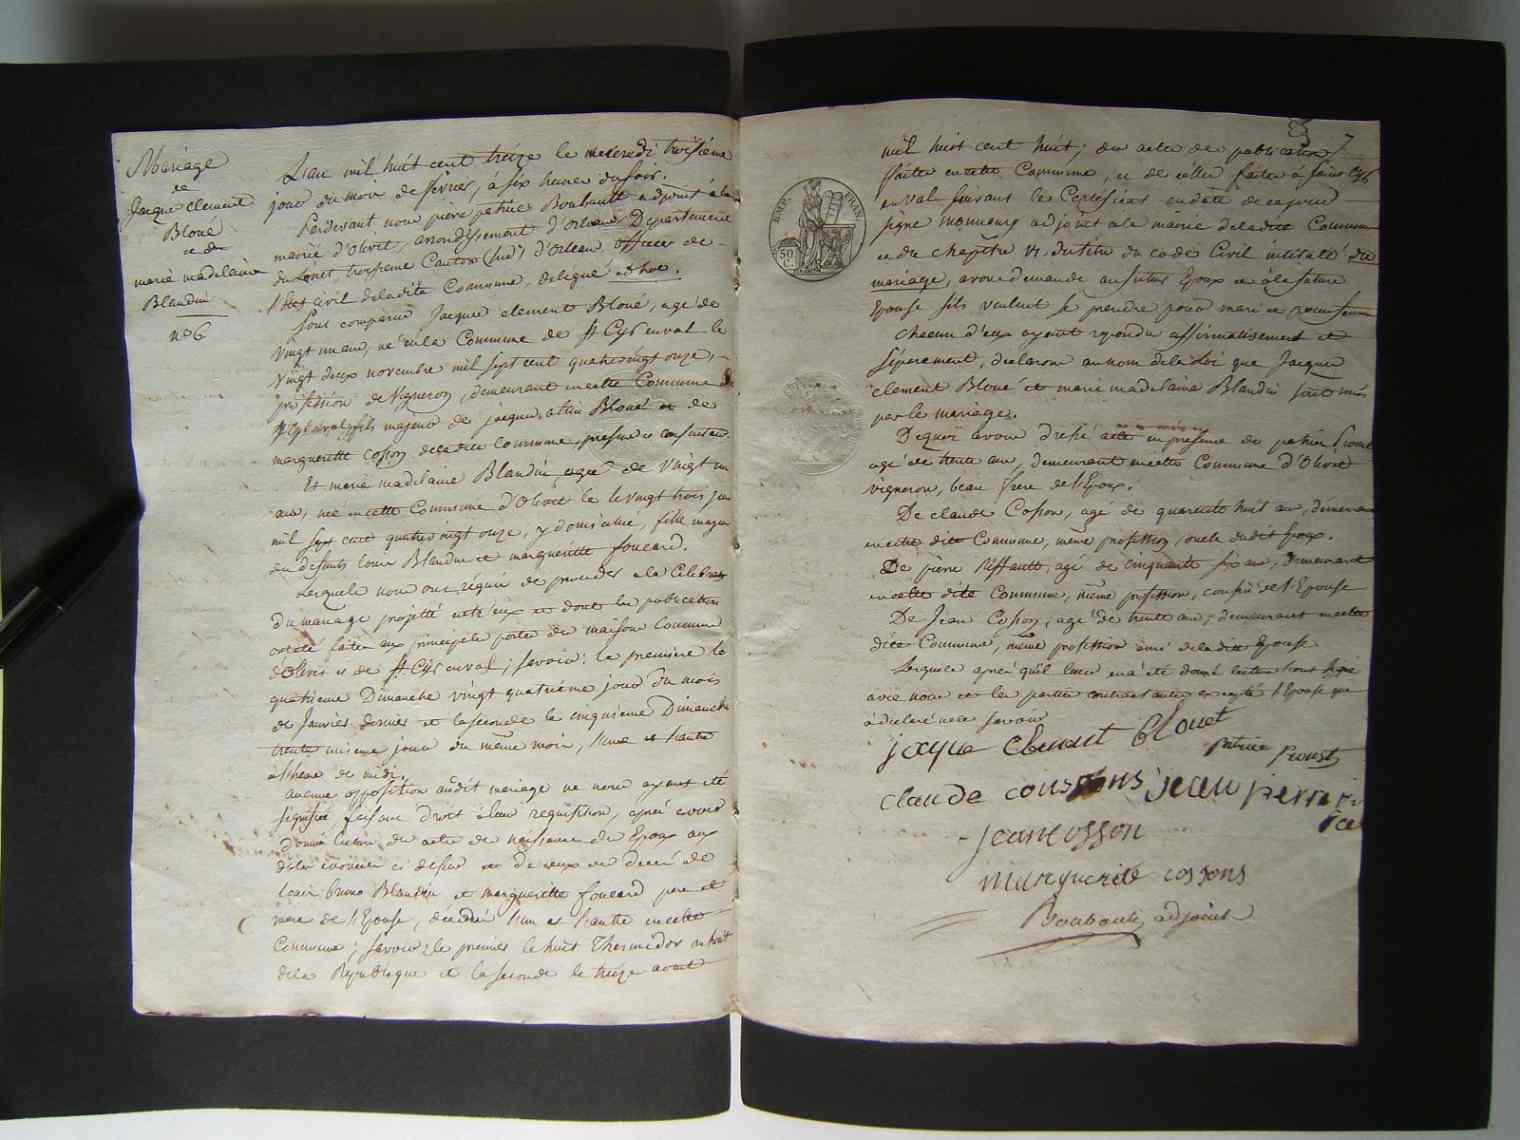 Mariage
de
Jacque Clement
Bloué
et de
marie madelaine
Blandin
no 6
L'an mil huit cent treize le mercredi troisieme
jour du mois de fevrier, à six heures du soir.
Pardevant nous pierre patrice Boubault adjoint à la
mairie d'Olivet, arrondissement d'Orleans Departement
du Loiret troisieme Canton (sud) d'Orleans officier de
l'Etat civil de ladite Commune, delegué ad hoc.
sont comparus Jacque clement Bloué, agé de
vingt un ans, né en la Commune de St Cyr en val le
vingt deux novembre mil sept cent quatrevingt onze,
profession de vigneron, demeurant en cette Commune de
St Cyr en val, fils majeur de jacque Bloué et de
marguerite Cosson de ladite Commune, presens et consentans
Et marie madelaine Blandin, agée de vingt un
ans, née en cette Commune d'Olivet le vingt trois
mil sept cent quatrevingt onze, y domiciliée, fille majeure
des defunts louis Blandin et marguerite foucard.
Lesquels nous ont requis de proceder a la Celebration
du mariage projetté entr'eux et dont les publications
ont été faites aux principales portes des maisons Commune
d'Olivet et de St Cyr en val; savoir: la premiere le
quatrieme Dimanche vingt quatrieme jour du mois
de Janvier dernier et la seconde le cinquieme Dimanche
trente unieme jour du même mois, l'une et l'autre
a l'heure de midi.
aucune opposition audit mariage ne nous ayant été
signifiée faisant droit à leur requisition, après avoir
donné lecture des actes de naissance des Epoux aux
dates enoncées ci dessus et de ceux de decès de
louis bruno Blandin et marguerite foucard pere et
mere de l'Epouse, décedés l'un et l'autre en cette
Commune; savoir: le premier le huit Thermidor an huit
de la Republique et la seconde le treize aout
7
mil huit cent huit; des actes de publication
faites en cette Commune, et de celles faites a saint Cyr
en val suivant le Certificat en date de ce jour
signé monneury adjoint a la mairie de ladite Commune
et du chapitre VI, du titre du code Civil intitulé du
mariage, avons demandé au futur Epoux et à la future
Epouse s'ils veulent se prendre pour mari et pour femme
chacun d'eux ayant repondu affirmativement et
séparement, declarons au nom de la Loi que Jacque
clement Bloué et marie madelaine Blandin sont unis
par le mariage.
De quoi avons dressé acte en presence de patrice Proust
agé de trente ans, demeurant en cette Commune d'Olivet
vigneron, beau frere de l'Epoux.
De claude Cosson, agé de quarente huit ans, demeurant
en cette dite Commune, même profession, oncle dudit Epoux.
De pierre Riffault, agé de cinquante six ans, demeurant
en cette dite Commune, même profession, cousin de l'Epouse
De Jean Cosson, agé de trente ans, demeurant en cette
dite Commune, même profession ami de ladite Epouse
Lesquels après qu'il leur en a été donné lecture l'ont signé
avec nous et les parties contractantes excepté l'Epouse qui
a declaré ne le savoir
jacque Clement blouet
Patrice Proust
claude cousons jean pierre
jean cosson
marguerite cossons
Boubault, adjoint
EMP. FRAN.
50 C.